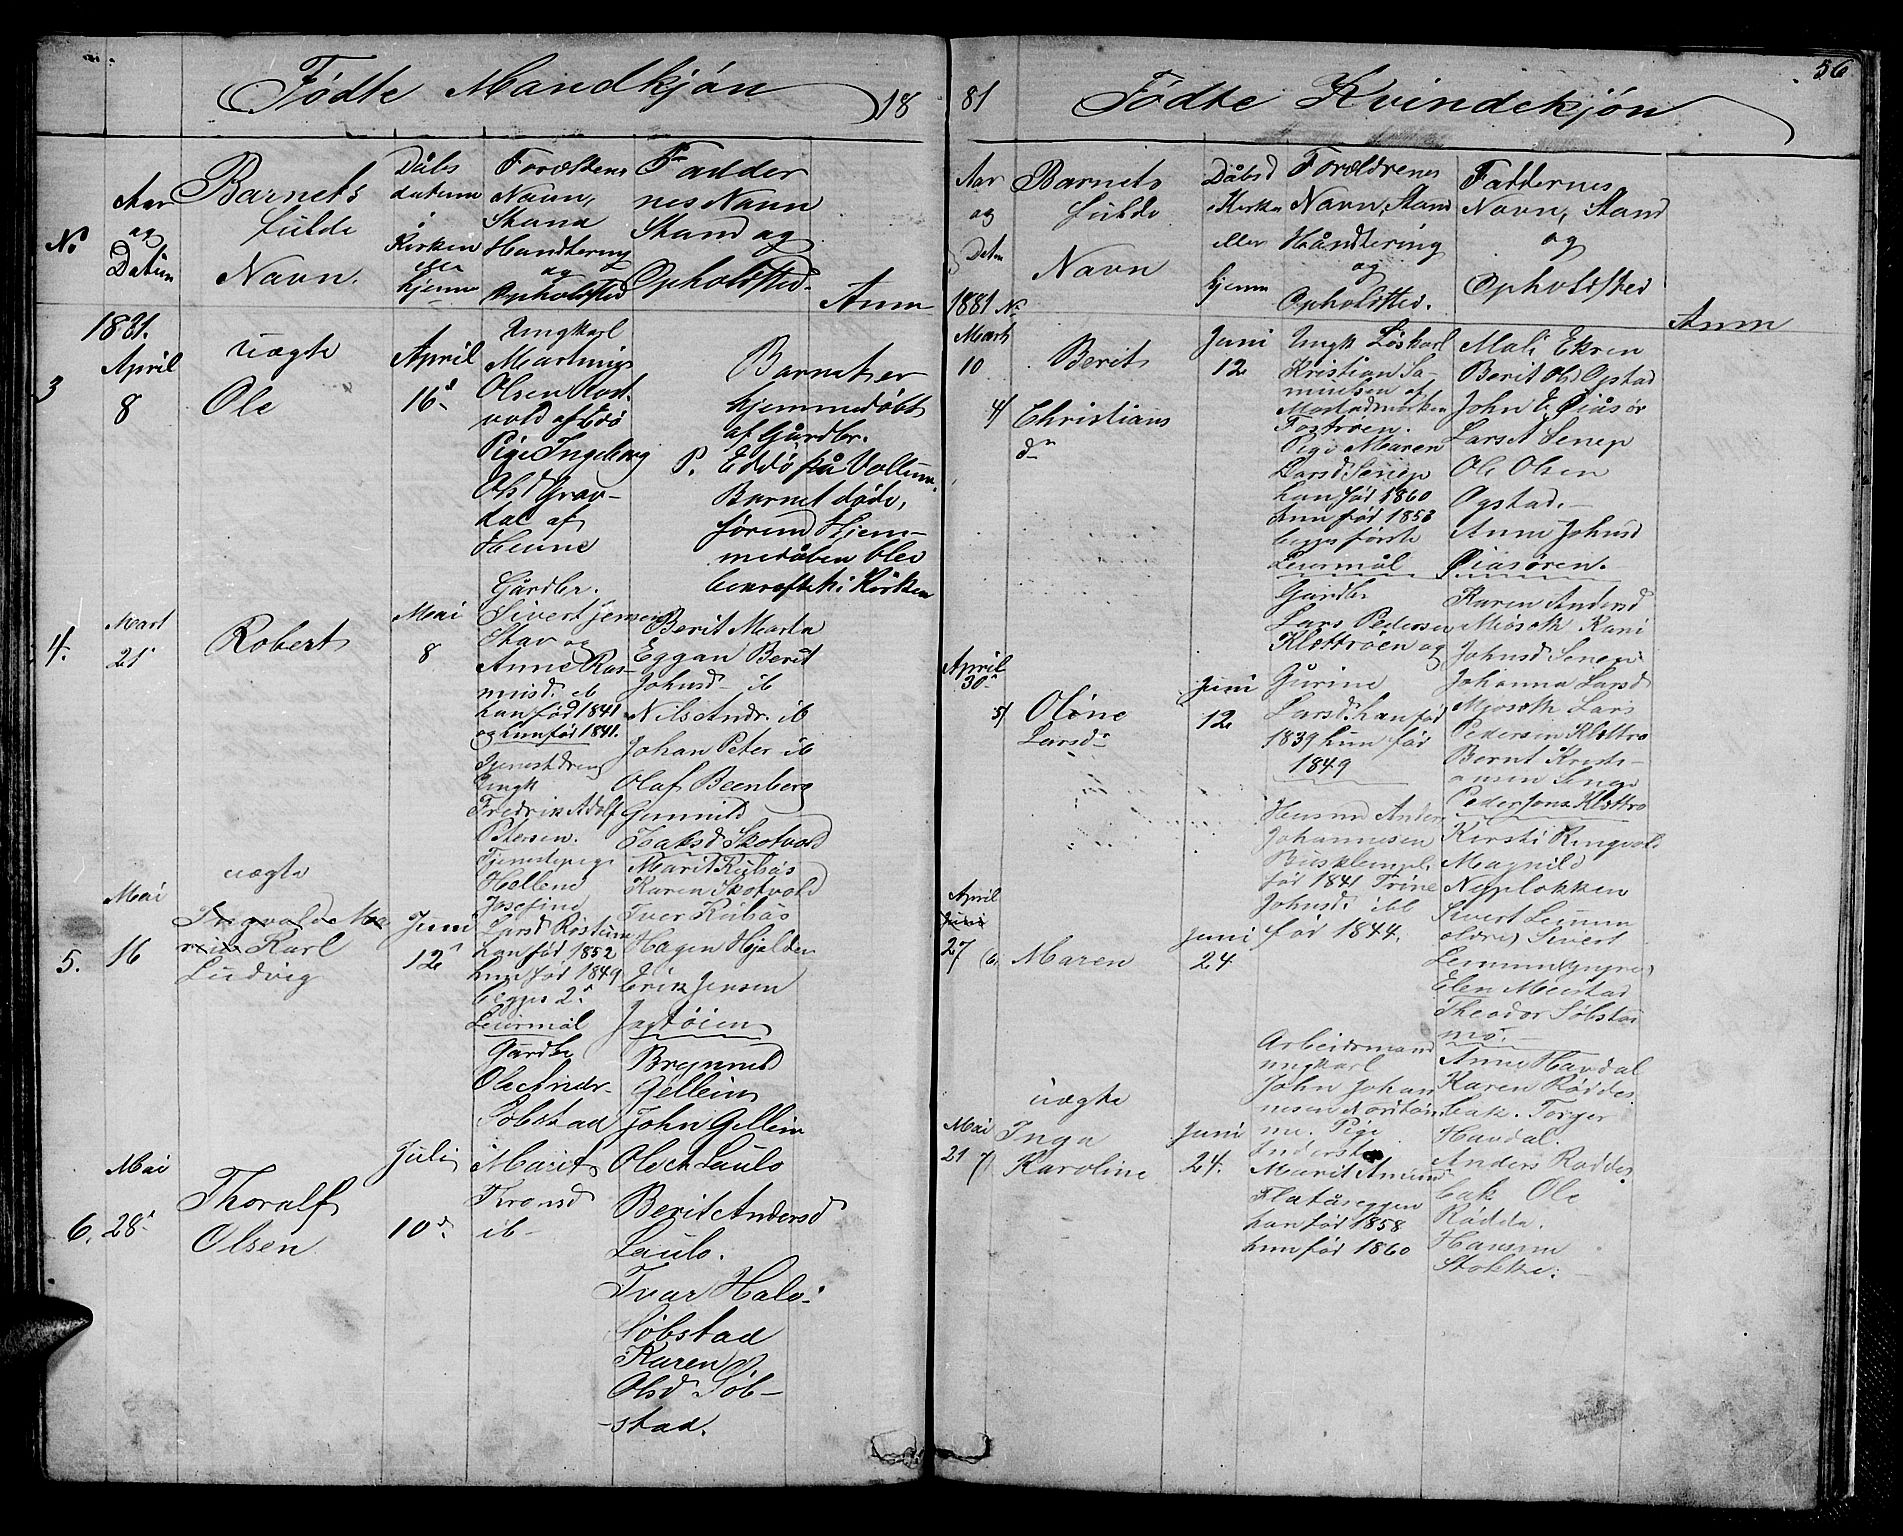 Fødte Mandkjøn
18
No
Aar
og
Datum
Barnets
fulde
Navn.
Dåbs
datum
i
Kirken
eller
hjemme
Navn,
Stand
Handtering
og
Opholdsted
Fadder
nes Navn
Stand og
Opholdsted.
Anm
1881.
3
April
8
uægte
Ole
April
16d
Ungkarl
Martinus
Olsen Rost
vold af Edø
Pige Ingeborg
Olsd Grav-
dal af
Henne
Barnet er
hjemmedøbt
af Gårdbr.
P. Eddø på Vollum.
Barnet døde,
førend Hjem-
medåben blev
bekræftet i Kirken
4.
Mart
21
Robert
Mai
8
Gårdbr.
Sivert Jensen
Stav og
Anne Ras-
musd. ib
han fød 1841
og hun fød 1841.
Berit Marta
Eggan Berit
Johnsd ib
Nils Andr. ib
Johan Peter ib
Olaf Beenberg
5.
Mai
16
uægte
Ingvald Ma
Karl
Ludvig
Juni
12
Tjenestdreng
Ungk
Fredrik Adolf
Petersen.
Tjenestepige
Hellene
Josefine
Larsd Røstum
han fød 1852
hun fød 1849
begges 2d
Leiermål
Gunnild
Isaksd Skotvold
Marit Rübås
Karen Skotvold
Iver Rübås
Hagen Hjelden
Erik Jensen
Jagtøien
6.
Mai
28d
Thoralf
Olsen
Juli
10d.
Gårdbr
Ole Andr.
Søbstad
Marit
Tronsd
ib
Brynnild
Gellein
John Gellein
Ole A Laulo
Berit Andersd
Laulo.
Ivar Halv.
Søbstad
Karen
Olsd Søb-
-stad.
56
81
Fødte Kvindekjøn
Aar
og
Datm
Barnets
fulde
Navn
Dåbsd
i Kirken
eller
hjem
Forældrenes
Navn, Stand
Håndtering
og
Opholdsted.
Faddernes
Navn, Stand
og
Opholdsted
Anm
1881 No
Marts
10
4/
Berit
Christians
d-
Juni
12
Ungk Løskarl
Kristian Sa-
muelsen af
Mostadmarken
Fostrøen.
Pige Maren
Larsd Senep
han fød 1860
hun fød 1853
begges første
Leiermål
Mali Ekren
Berit Olsd Opstad
John E Øiåsør
Lars A Senep
Ole Olsen
Opstad.-
Anne Johnsd
Øiasøren.
April
30.
5/
Oline
Larsd
Juni
12
Gardbr
Lars Pedersen
Klættrøen og
Jurine
Larsd. han fød
1839 hun fød
1849
Karen Andersd
Mosætk Kani
Johnsd Senep
Johanna Larsd
Mosætk Lars
Pedersen Klættro
Bernt Kristi-
ansen Senep
Peder Jons Klættro
April
Juni
27
6/
Maren
Juni
24
Husmd Anders
Johannesen
Buaklempl.
fød 1841 Trine
Johnsd. ibd
fød 1844.
Kirsti Ringvold
Magnild
Nyplokken
Sivert Lemmen
ældre) Sivert
Lemmen (yngre)
Elen Meistad
Theodor Søbstad
mo.
Mai
21
7/
uægte
Inga
Karoline
Juni
24.
Arbeidsmand
ungkarl
John Johan
nesen
Pige
Marit Amund
Flatåseggen
han fød 1858
hun fød 1860
Anne Havdal
Karen Rødde
bak. Torger
Havdal.
Anders Rødde
bak Ole
Rødde.
Hansine
Stokke.